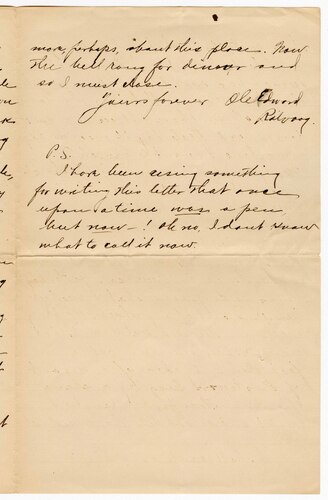 more, perhaps, about this place. Now
the bell rang for dinner and
so I must close.
Yours forever Ole Edward
P.S.
I have been using something
for writing this letter that once
upon a time was a pen
but now—! Oh no, I don't know
what to call it now.